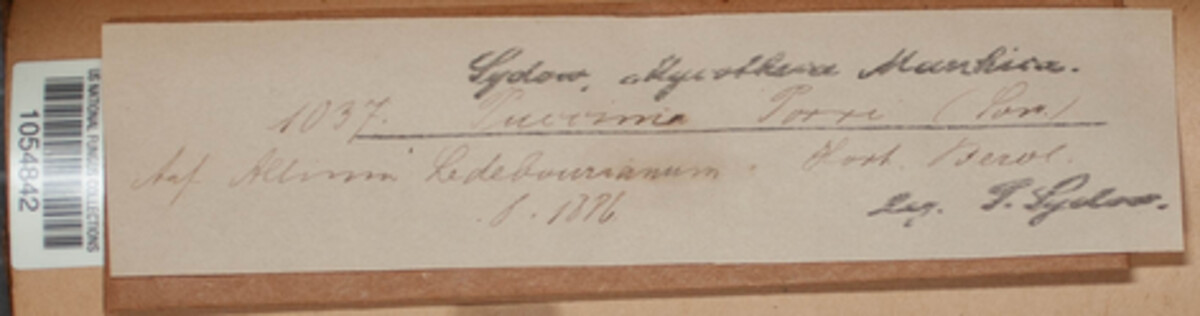 Sydow, Mycotheca Marchica.
1037. Puccinia Porri (Sow.)
Auf Allium Ledebourianum. Hort. Berol.
8. 1876
Leg. P. Sydow.
US NATIONAL FUNGUS COLLECTIONS
1054842